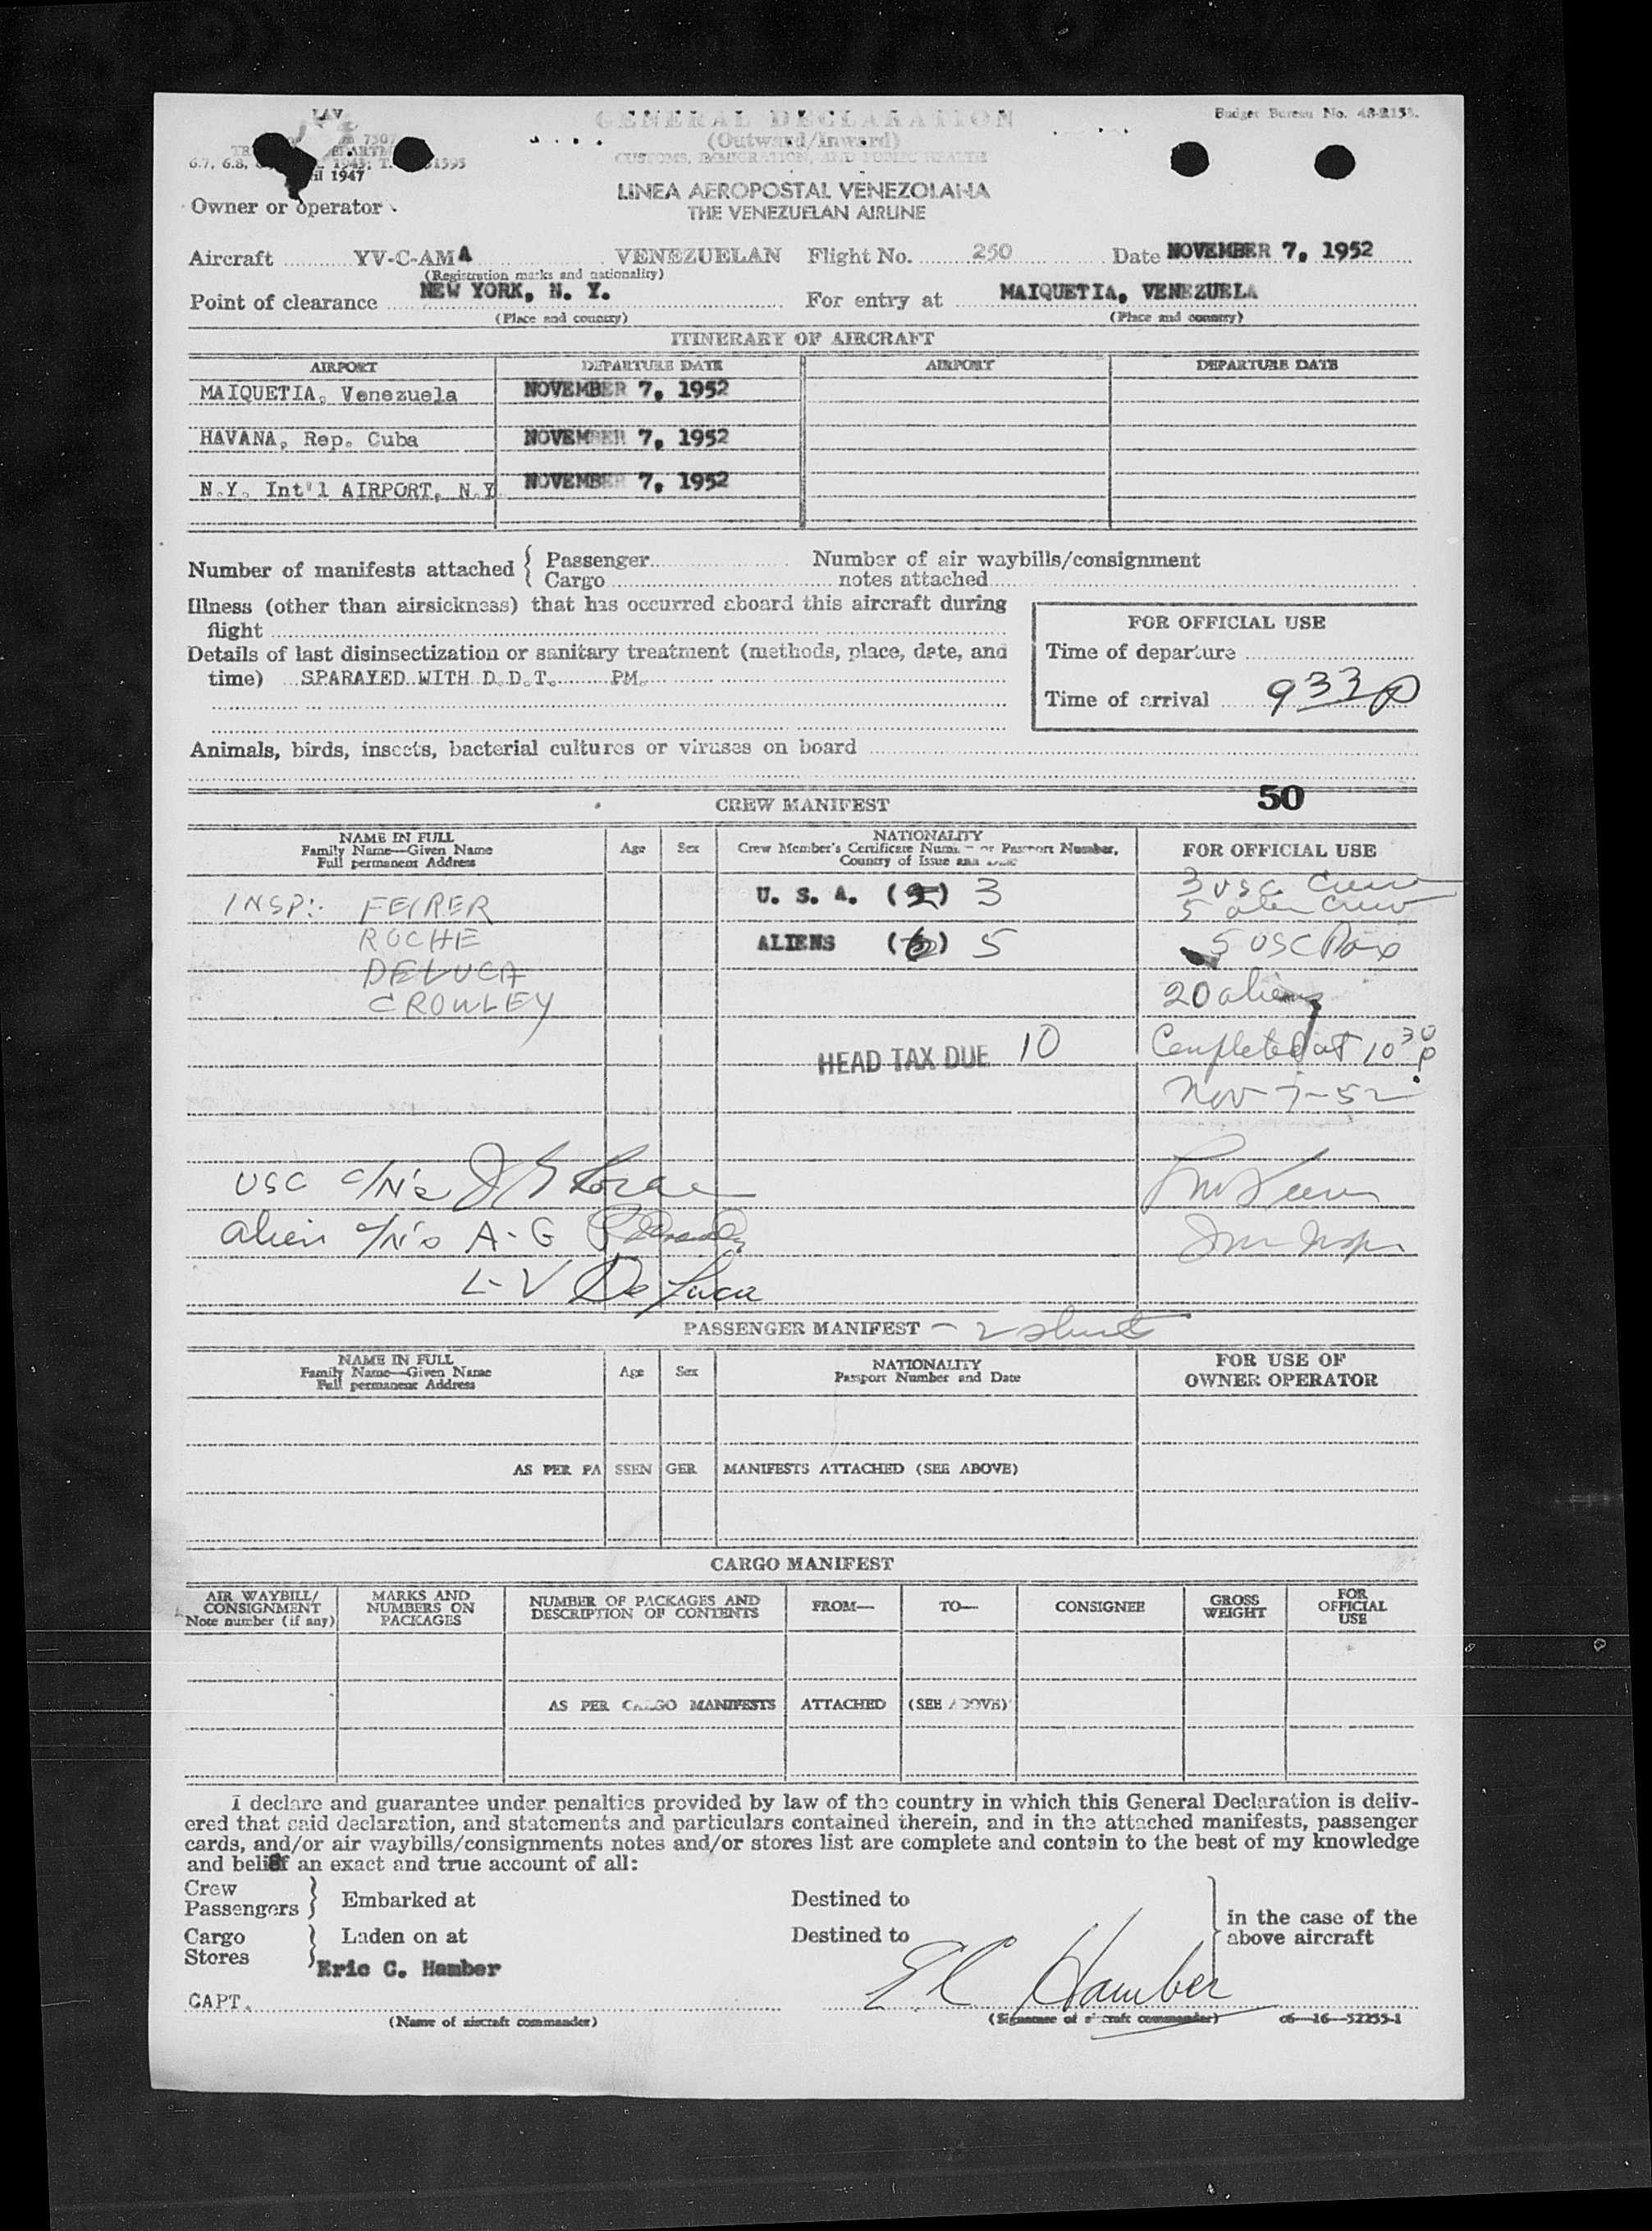 LAV
GENERAL DECLARATION
(Outward/Inward)
CUSTOMS, IMMIGRATION, AND PUBLIC HEALTH
Budget Bureau No.
7507
6.7, 6.8, 1943; T.
1947
LINEA AEROPOSTAL VENEZOLANA
THE VENEZUELAN AIRLINE
Owner or operator
Aircraft YV-C-AMA VENEZUELAN Flight No. 250 Date NOVEMBER 7, 1952
(Registration marks and nationality)
Point of clearance NEW YORK, N. Y. For entry at MAIQUETIA, VENEZUELA
(Place and country) (Place and country)
ITINERARY OF AIRCRAFT
AIRPORT DEPARTURE DATE AIRPORT DEPARTURE DATE
MAIQUETIA, Venezuela NOVEMBER 7, 1952
HAVANA, Rep. Cuba NOVEMBER 7, 1952
N.Y. Int'l AIRPORT, N.Y. NOVEMBER 7, 1952
Number of manifests attached { Passenger Number of air waybills/consignment
Cargo notes attached
Illness (other than airsickness) that has occurred aboard this aircraft during
flight
Details of last disinsectization or sanitary treatment (methods, place, date, and
time) SPARAYED WITH D.D.T. PM.
FOR OFFICIAL USE
Time of departure
Time of arrival 933p
Animals, birds, insects, bacterial cultures or viruses on board
50
CREW MANIFEST
NAME IN FULL
Family Name—Given Name
Full permanent Address
Age Sex
NATIONALITY
Crew Member's Certificate or Passport Number,
Country of Issue
FOR OFFICIAL USE
INSP: FEIRER
ROCHE
DELUCA
CROWLEY
U. S. A. (2) 3
ALIENS (6) 5
HEAD TAX DUE 10
3 USC Crew
5 alien Crew
5 USC Pax
20 aliens
Completed at 10 30 p
Nov 7-52
USC c/N's
alien c/N's A-G
L-V De Luca
PASSENGER MANIFEST - 2 sheets
NAME IN FULL
Family Name—Given Name
Full permanent Address
Age Sex
NATIONALITY
Passport Number and Date
FOR USE OF
OWNER OPERATOR
AS PER PASSENGER MANIFESTS ATTACHED (SEE ABOVE)
CARGO MANIFEST
AIR WAYBILL/
CONSIGNMENT
Note number (if any)
MARKS AND
NUMBERS ON
PACKAGES
NUMBER OF PACKAGES AND
DESCRIPTION OF CONTENTS
FROM— TO— CONSIGNEE
GROSS
WEIGHT
FOR
OFFICIAL
USE
AS PER CARGO MANIFESTS ATTACHED (SEE ABOVE)
I declare and guarantee under penalties provided by law of the country in which this General Declaration is deliv-
ered that said declaration, and statements and particulars contained therein, and in the attached manifests, passenger
cards, and/or air waybills/consignments notes and/or stores list are complete and contain to the best of my knowledge
and belief an exact and true account of all:
Crew
Passengers } Embarked at Destined to
Cargo
Stores } Laden on at Destined to
in the case of the
above aircraft
Eric C. Hamber
CAPT. E C Hamber
(Name of aircraft commander) (Signature of aircraft commander) 06—16—52255-1